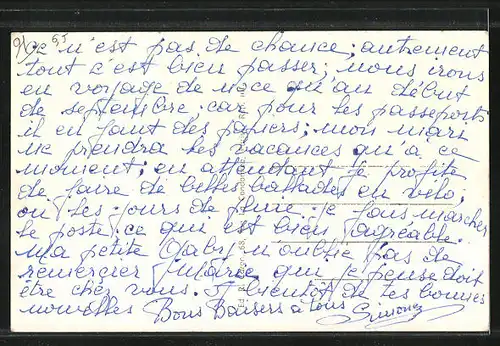 ce n'est pas de chance; autrement
tout c'est bien passer; nous irons
en voyage de noce qu'au début
de septembre car pour les passeports
il en faut des papiers; mon mari
ne prendra ses vacances qu'à ce
moment; en attendant je profite
de faire de belles ballades en vélo;
ou les jours de pluie je fais marcher
le poste ce qui est bien agréable.
Ma petite Gaby n'oublie pas de
remercier Marie que je pense doit
être chez vous. A bientôt de tes bonnes
nouvelles Bons Baisers à tous
Simone